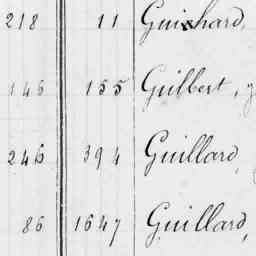 218 11 Guichard,
146 155 Guilbert,
246 394 Guillard,
86 1647 Guillard,